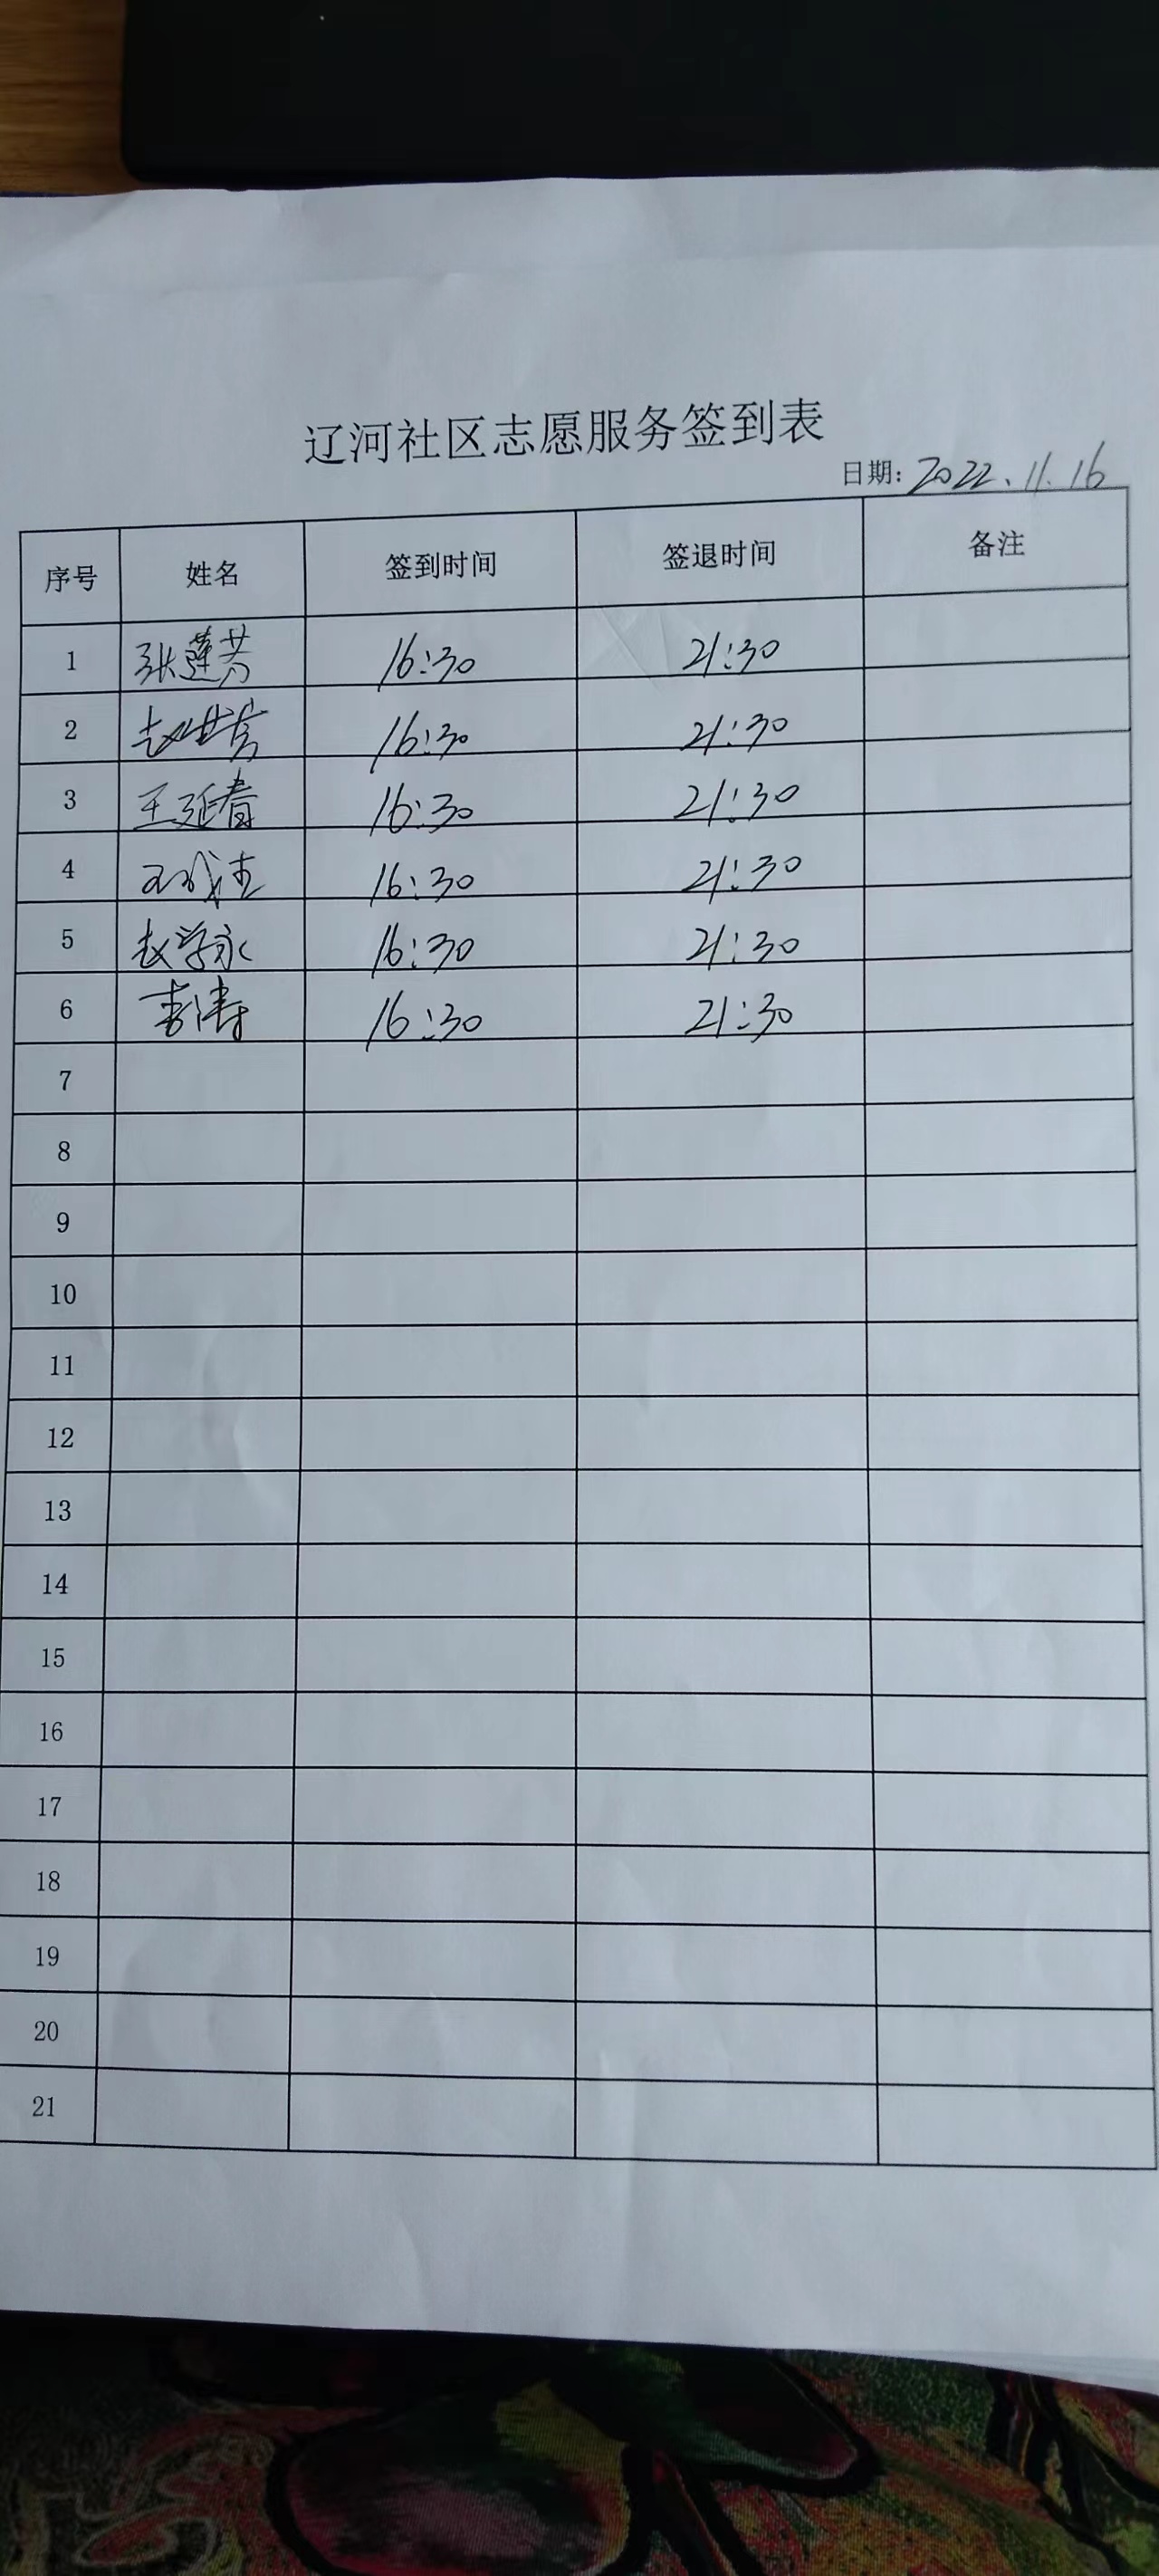 辽河社区志愿服务签到表
日期: 2022.11.16
序号 姓名 签到时间 签退时间 备注
1 张莲芳 16:30 21:30
2 赵 16:30 21:30
3 王延春 16:30 21:30
4 16:30 21:30
5 赵学永 16:30 21:30
6 李涛 16:30 21:30
7
8
9
10
11
12
13
14
15
16
17
18
19
20
21